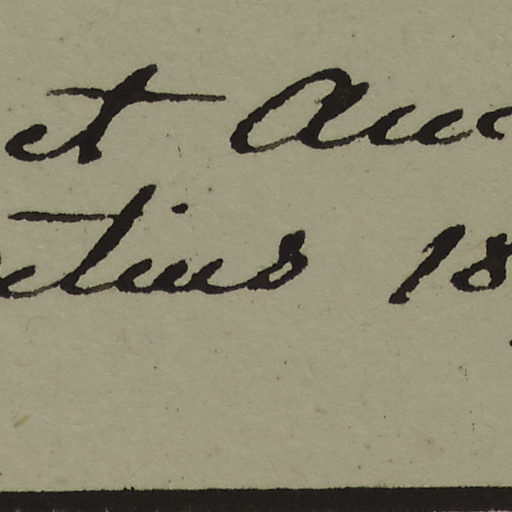 et Auc
etius 18